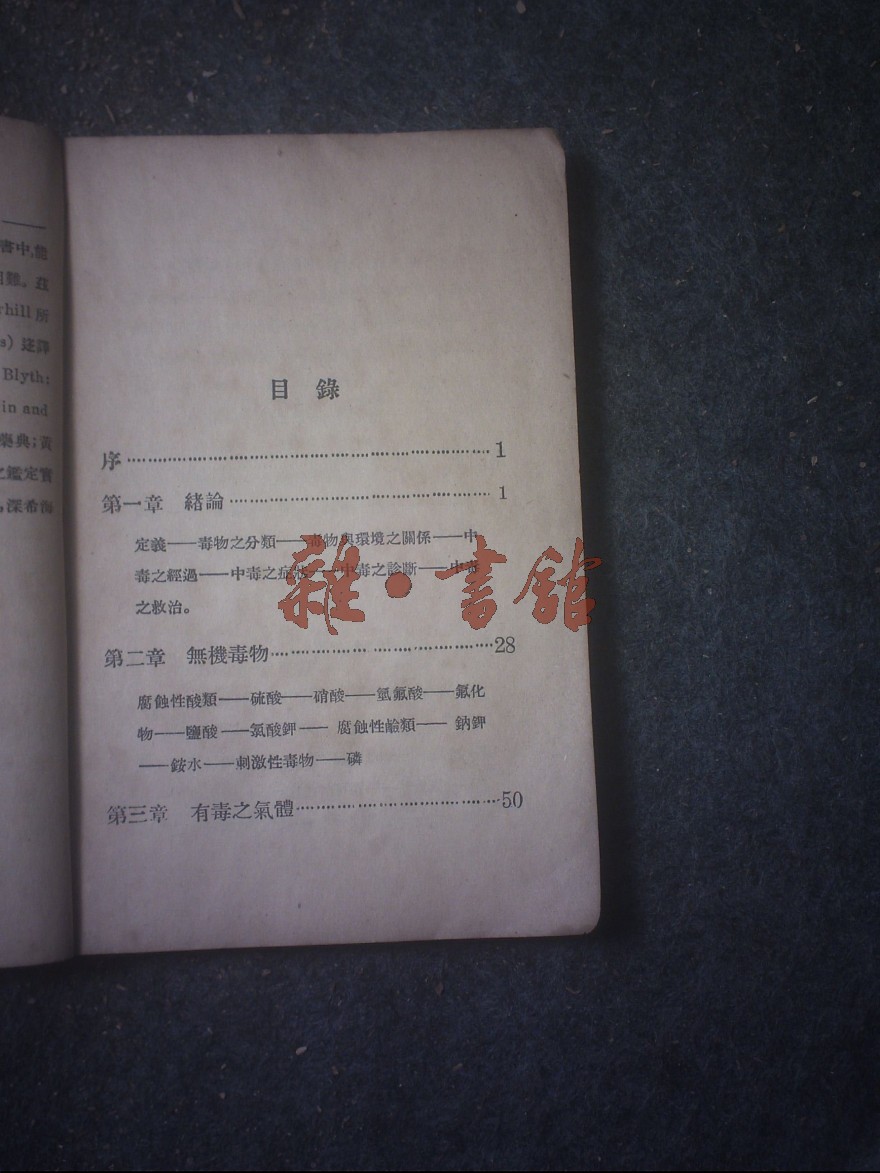 書中,能
難。茲
rhill 所
s) 迻譯
Blyth:
in and
藥典;黃
之鑑定實
,深希海
目錄
序……………………………………1
第一章 緒論……………………………1
定義——毒物之分類——毒物與環境之關係——中
毒之經過——中毒之症狀——中毒之診斷——中毒
之救治。
第二章 無機毒物………………………28
腐蝕性酸類——硫酸——硝酸——氫氟酸——氟化
物——鹽酸——氯酸鉀——腐蝕性鹼類——鈉鉀
——銨水——刺激性毒物——磷
第三章 有毒之氣體……………………50
雜·書館